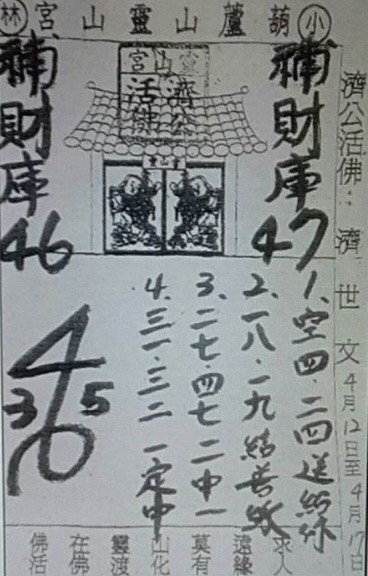 小葫蘆山靈山宮林
濟公活佛：濟世文 4月12日至4月17日
補財庫 47
濟公
活佛
補財庫 46
1、空四、二四送給你
2、一八、一九結善緣
3、二七、四七二中一
4、三一、三二一定中
4
3 5
6
佛在靈山莫遠求
活佛渡化有緣人